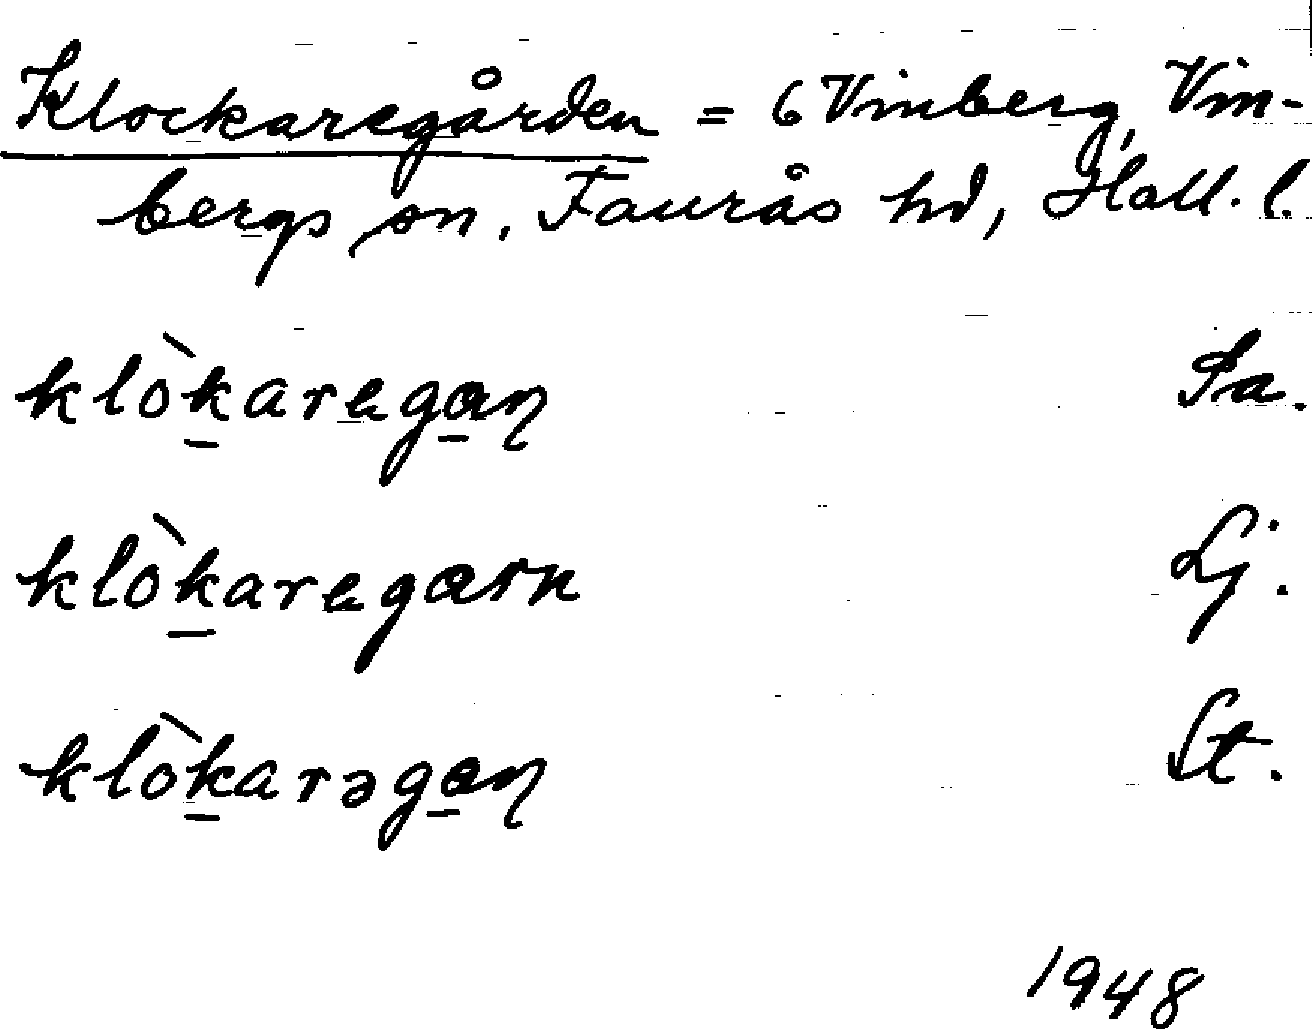 Klockaregården = 6 Vinberg, Vin-
bergs sn, Faurås hd, Hall. l.
klòk̲arega̲ɳ Pa.
klòk̲aregarn Lj.
klòk̲arəga̲ɳ St.
1948